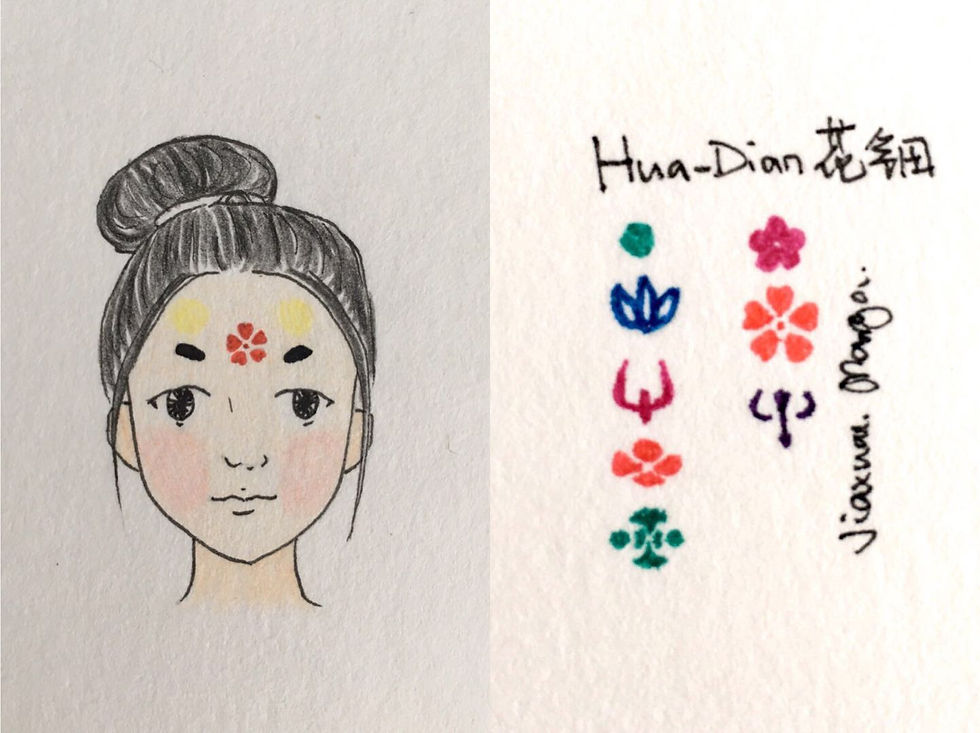 Hua-Dian 花钿
Jiaxuan. Manga.